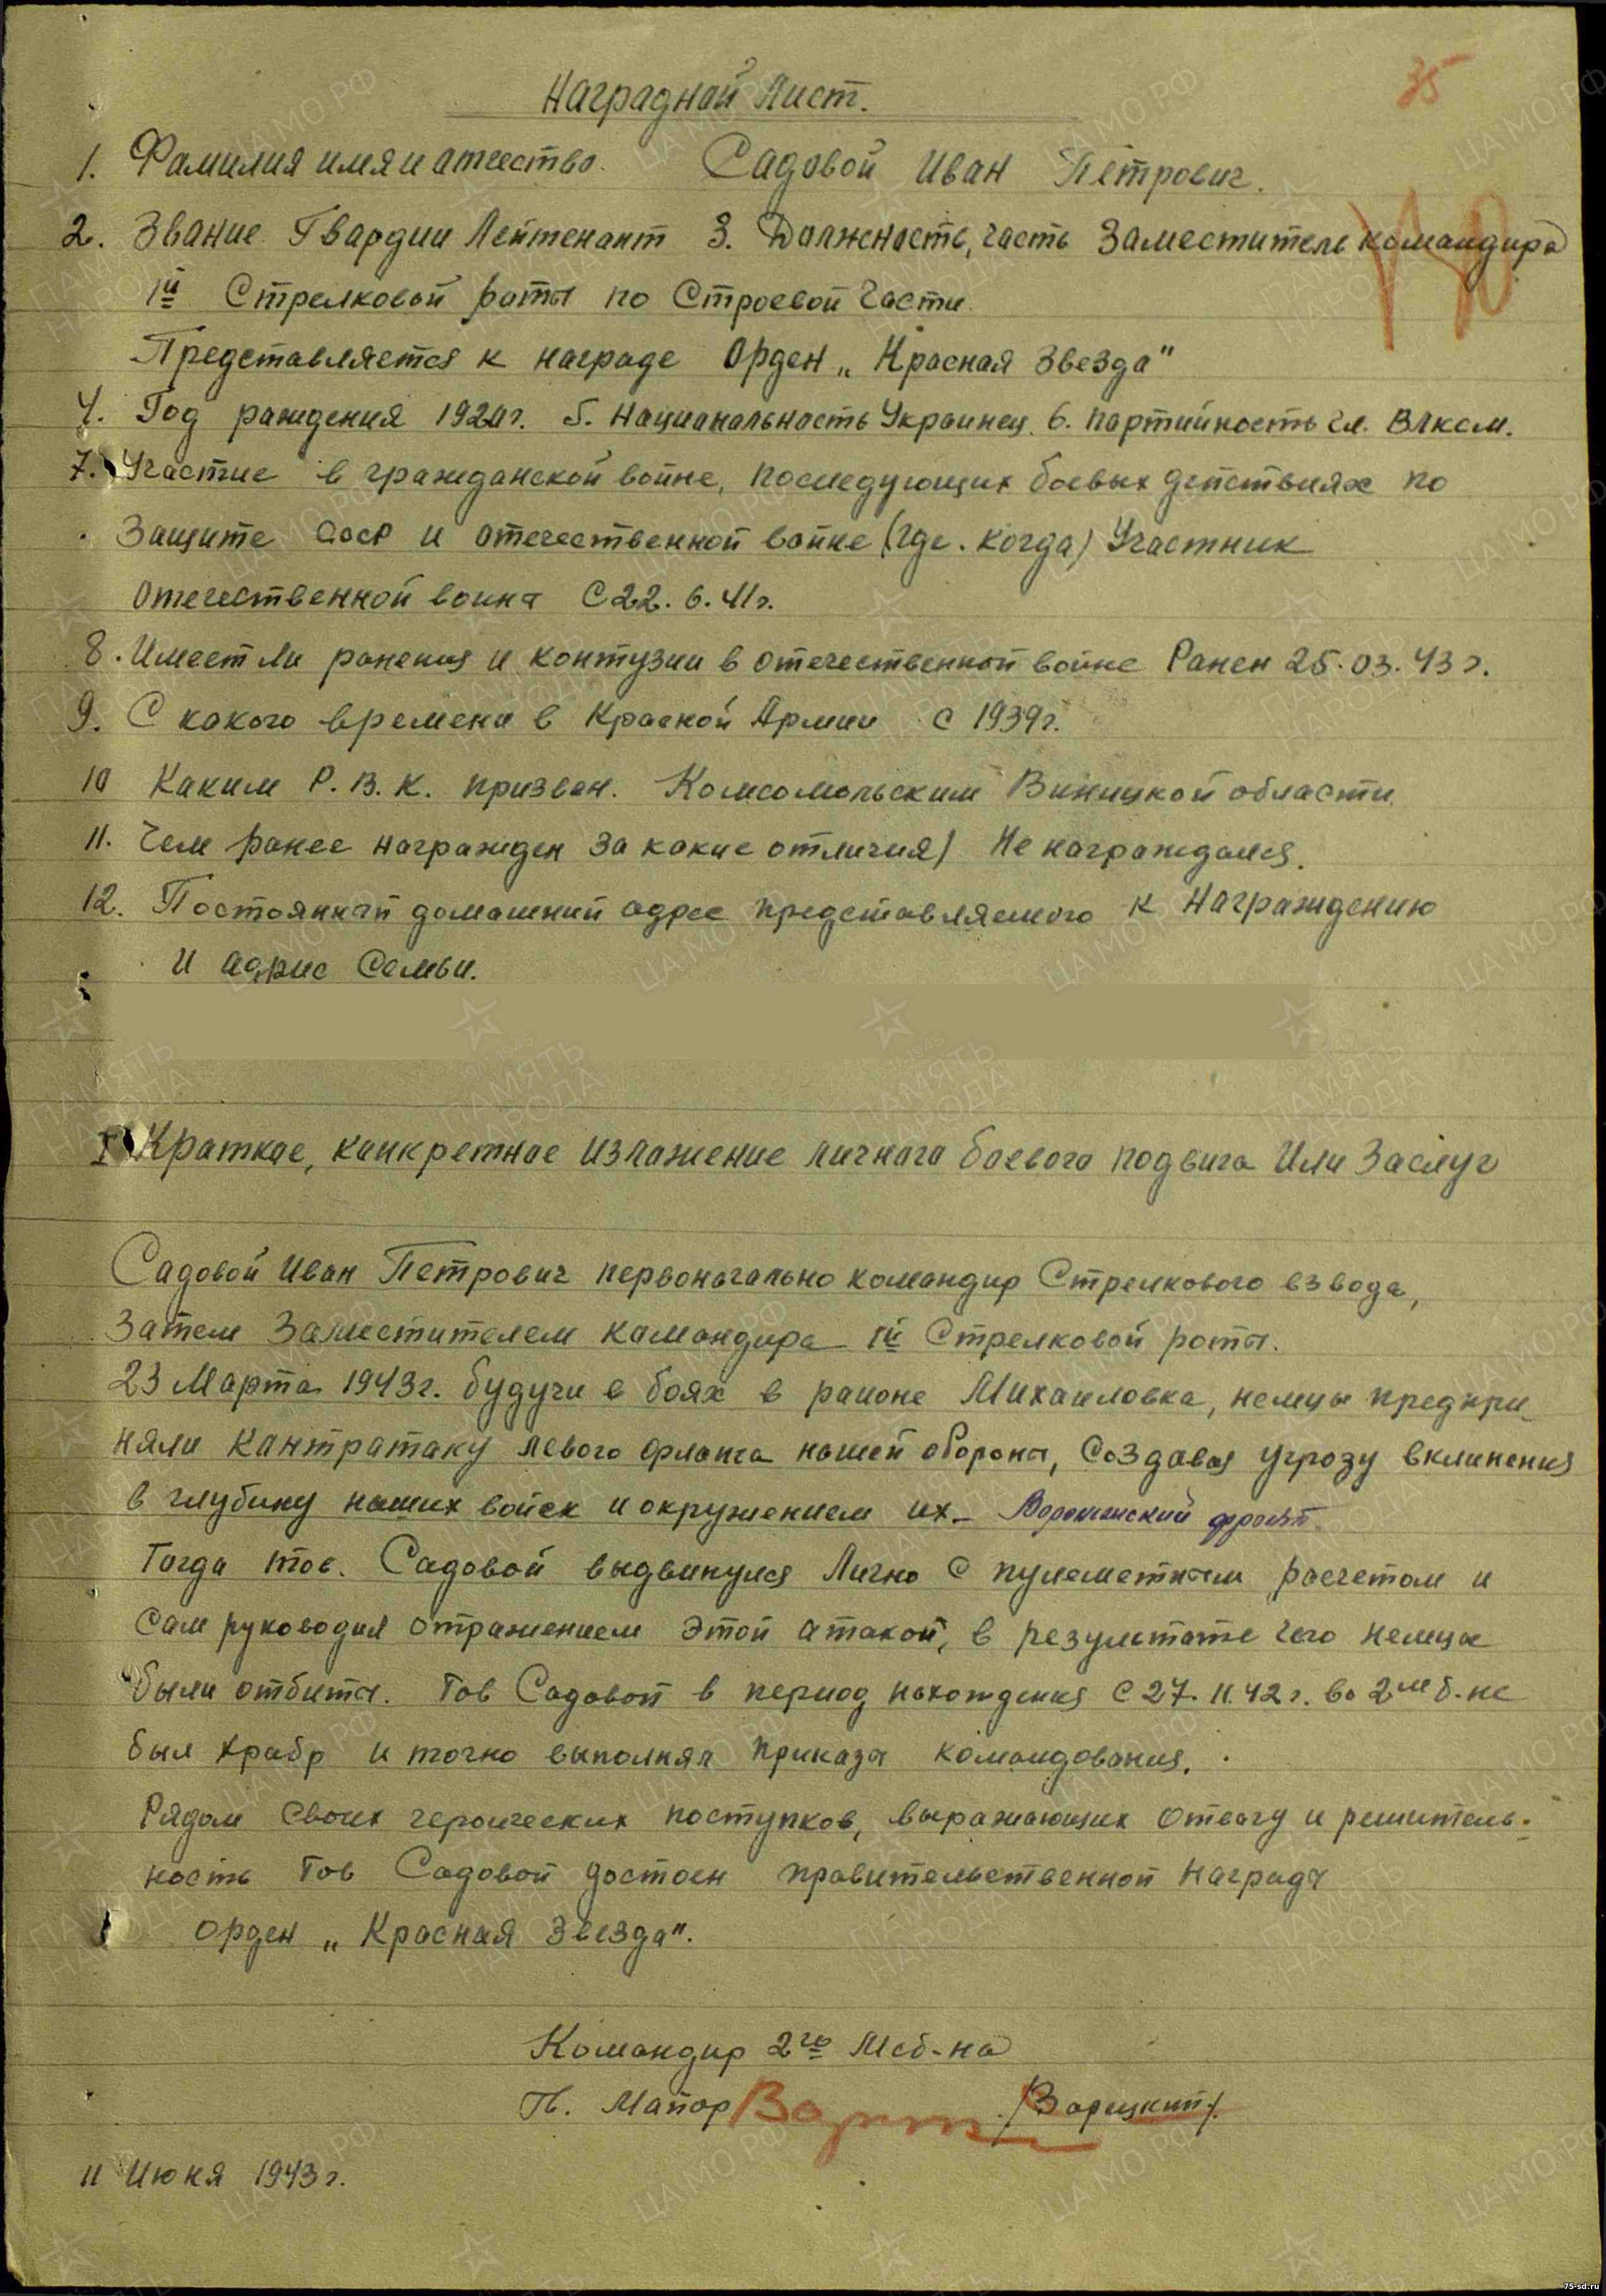 35
Наградной Лист.
1. Фамилия имя и отчество. Садовой Иван Петрович.
2. Звание Гвардии Лейтенант 3. Должность, часть Заместитель командира
1й Стрелковой роты по Строевой части.
Представляется к награде Орден „Красная Звезда"
4. Год рождения 1920г. 5. Национальность Украинец. 6. Партийность чл. ВЛКСМ.
7. Участие в гражданской войне, последующих боевых действиях по
Защите СССР и отечественной войне (где. когда) Участник
Отечественной войны С 22. 6. 41г.
8. Имеет ли ранения и контузии в отечественной войне Ранен 25.03.43г.
9. С какого времени в Красной Армии с 1939г.
10 Каким Р.В.К. призван. Комсомольским Виницкой области
11. Чем ранее награжден За какие отличия) Не награждался.
12. Постоянный домашний адрес представляемого к Награждению
и адрис Семьи.
I Краткое, конкретное изложение личного боевого подвига Или Заслуг
Садовой Иван Петрович первоначально командир Стрелкового взвода,
Затем Заместителем командира 1й Стрелковой роты.
23 Марта 1943г. будучи в боях в районе Михаиловка, немцы предпри-
няли Кантратаку левого фланга нашей обороны, Создавая угрозу вклинения
в глубину наших войск и окружением их- Воронежский фронт.
Тогда тов. Садовой выдвинулся Лично с пулеметным расчетом и
Сам руководил отражением этой атакой, в результате чего немцы
были отбиты. Тов Садовой в период нахождения с 27.11.42г. во 2м б-не
был храбр и точно выполнял приказы командования.
Рядом своих героических поступков, выражающих отвагу и решитель-
ность Тов Садовой достоен правительственной награды
орден „Красная Звезда".
Командир 2го Мсб-на
Гв. Майор /Зарицкий/.
11 Июня 1943г.
ПАМЯТЬ НАРОДА
ЦА МО РФ
75-sd.ru